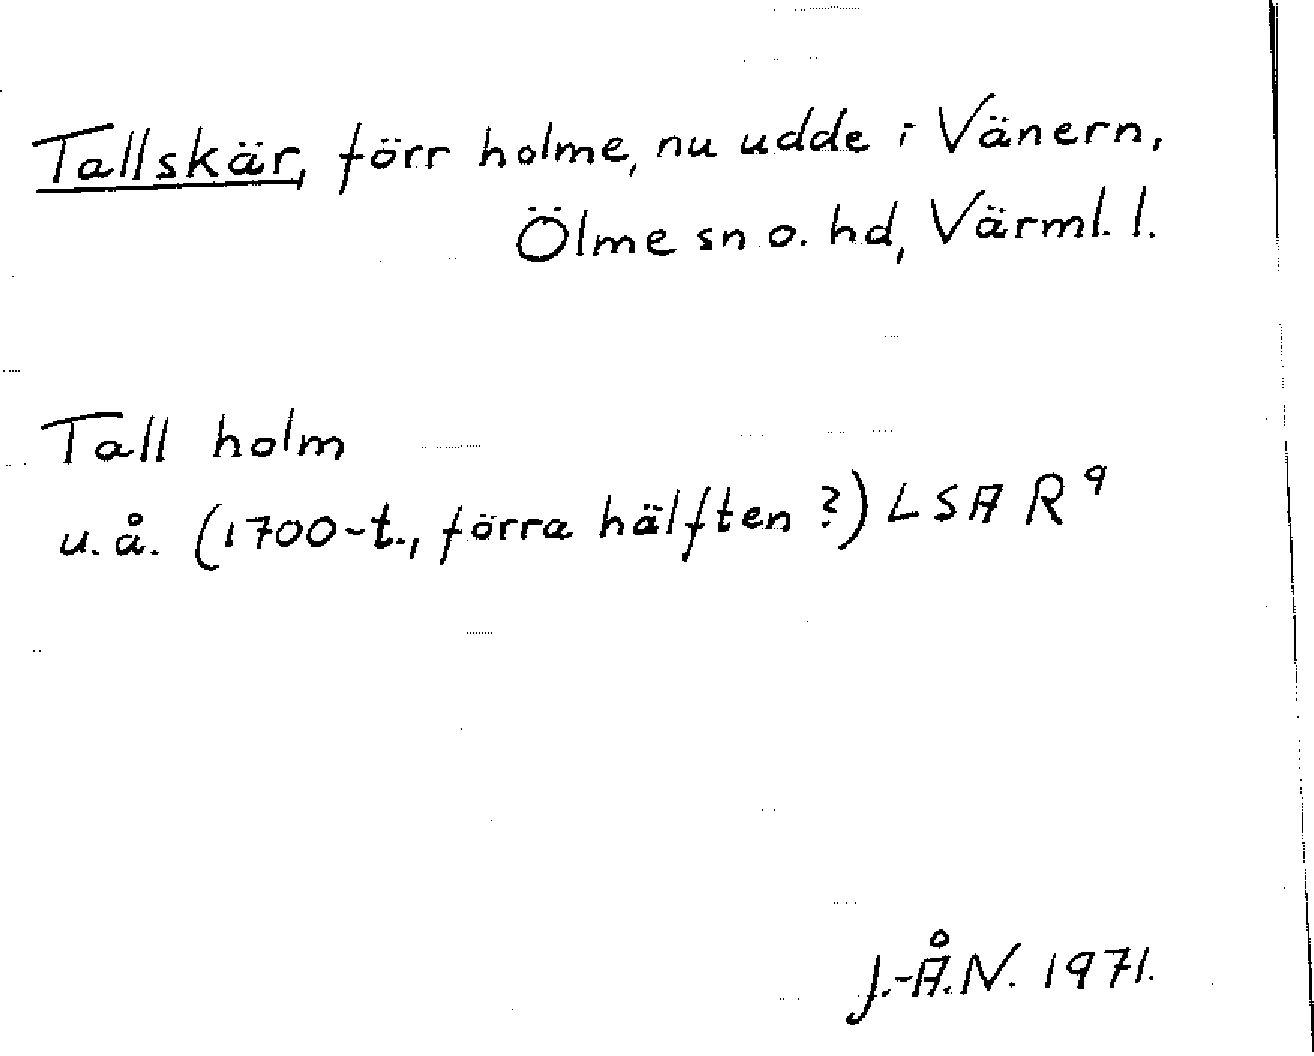 Tallskär, förr holme, nu udde i Vänern,
Ölme sn o. hd, Värml. l.
Tall holm
u. å. (1700-t., förra hälften ?) LSA R 9
J.-Å.N. 1971.